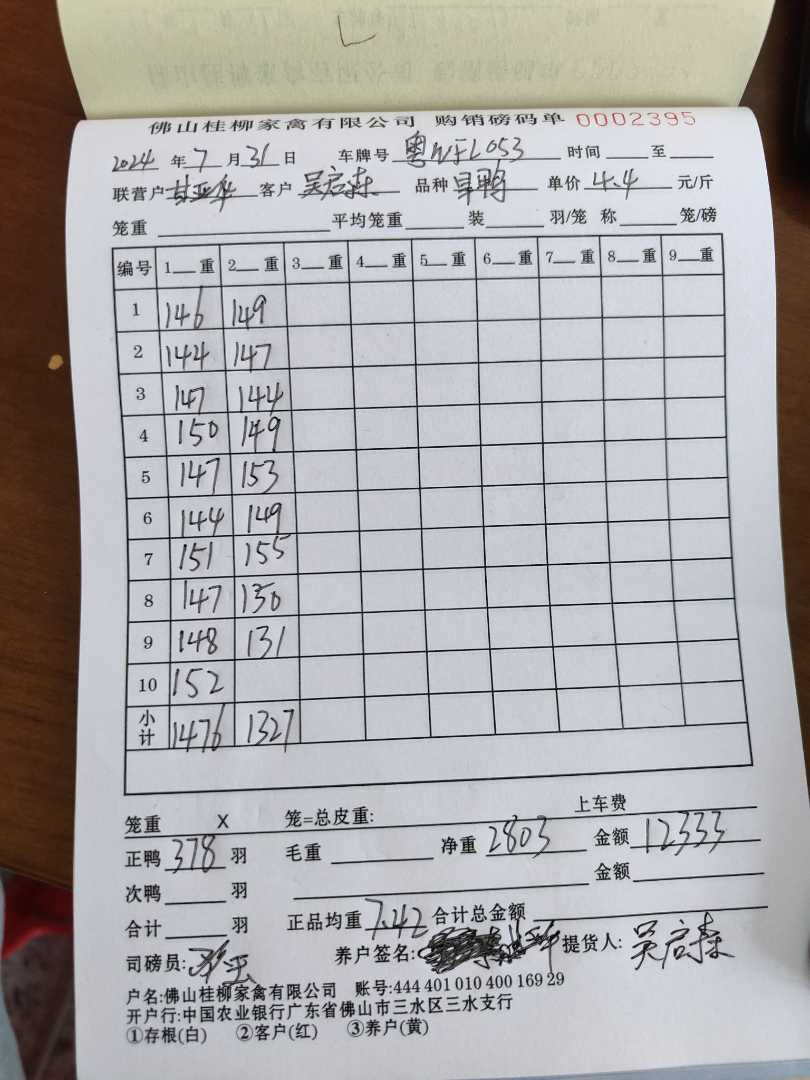 佛山桂柳家禽有限公司 购销磅码单 0002395
2024 年 7 月 31 日 车牌号 粤WFL053 时间 至
联营户 客户 吴启森 品种 旱鸭 单价 4.4 元/斤
笼重 平均笼重 装 羽/笼 称 笼/磅
编号 1 重 2 重 3 重 4 重 5 重 6 重 7 重 8 重 9 重
1 146 149
2 144 147
3 147 144
4 150 149
5 147 153
6 144 149
7 151 155
8 147 150
9 148 131
10 152
小计 1476 1327
笼重 X 笼=总皮重: 上车费
正鸭 378 羽 毛重 净重 2803 金额 12333
次鸭 羽 金额
合计 羽 正品均重 7.42 合计总金额
司磅员: 养户签名: 提货人: 吴启森
户名:佛山桂柳家禽有限公司 账号:444 401 010 400 169 29
开户行:中国农业银行广东省佛山市三水区三水支行
①存根(白) ②客户(红) ③养户(黄)